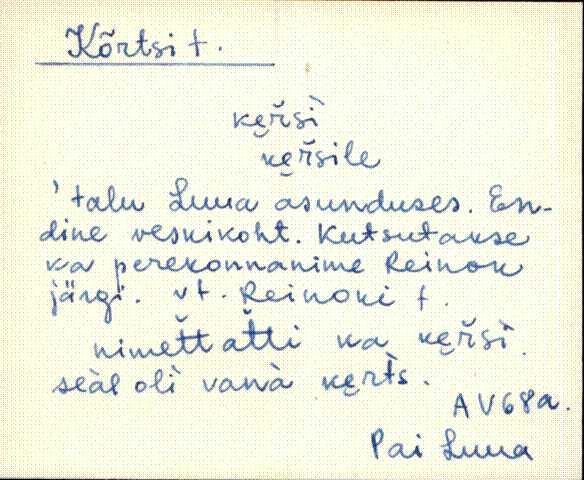 Kõrtsi t.
ke̮řsì
ke̮řsile
'talu Luua asunduses. En-
dine veskikoht. Kutsutakse
ka perekonnanime Reinok
järgi. vt. Reinoki t.
nimet̆t̆at̆t̆i ka ke̮řsì.
seàl olì vanà ke̮rt̀s.
AV68a.
Pai Luua